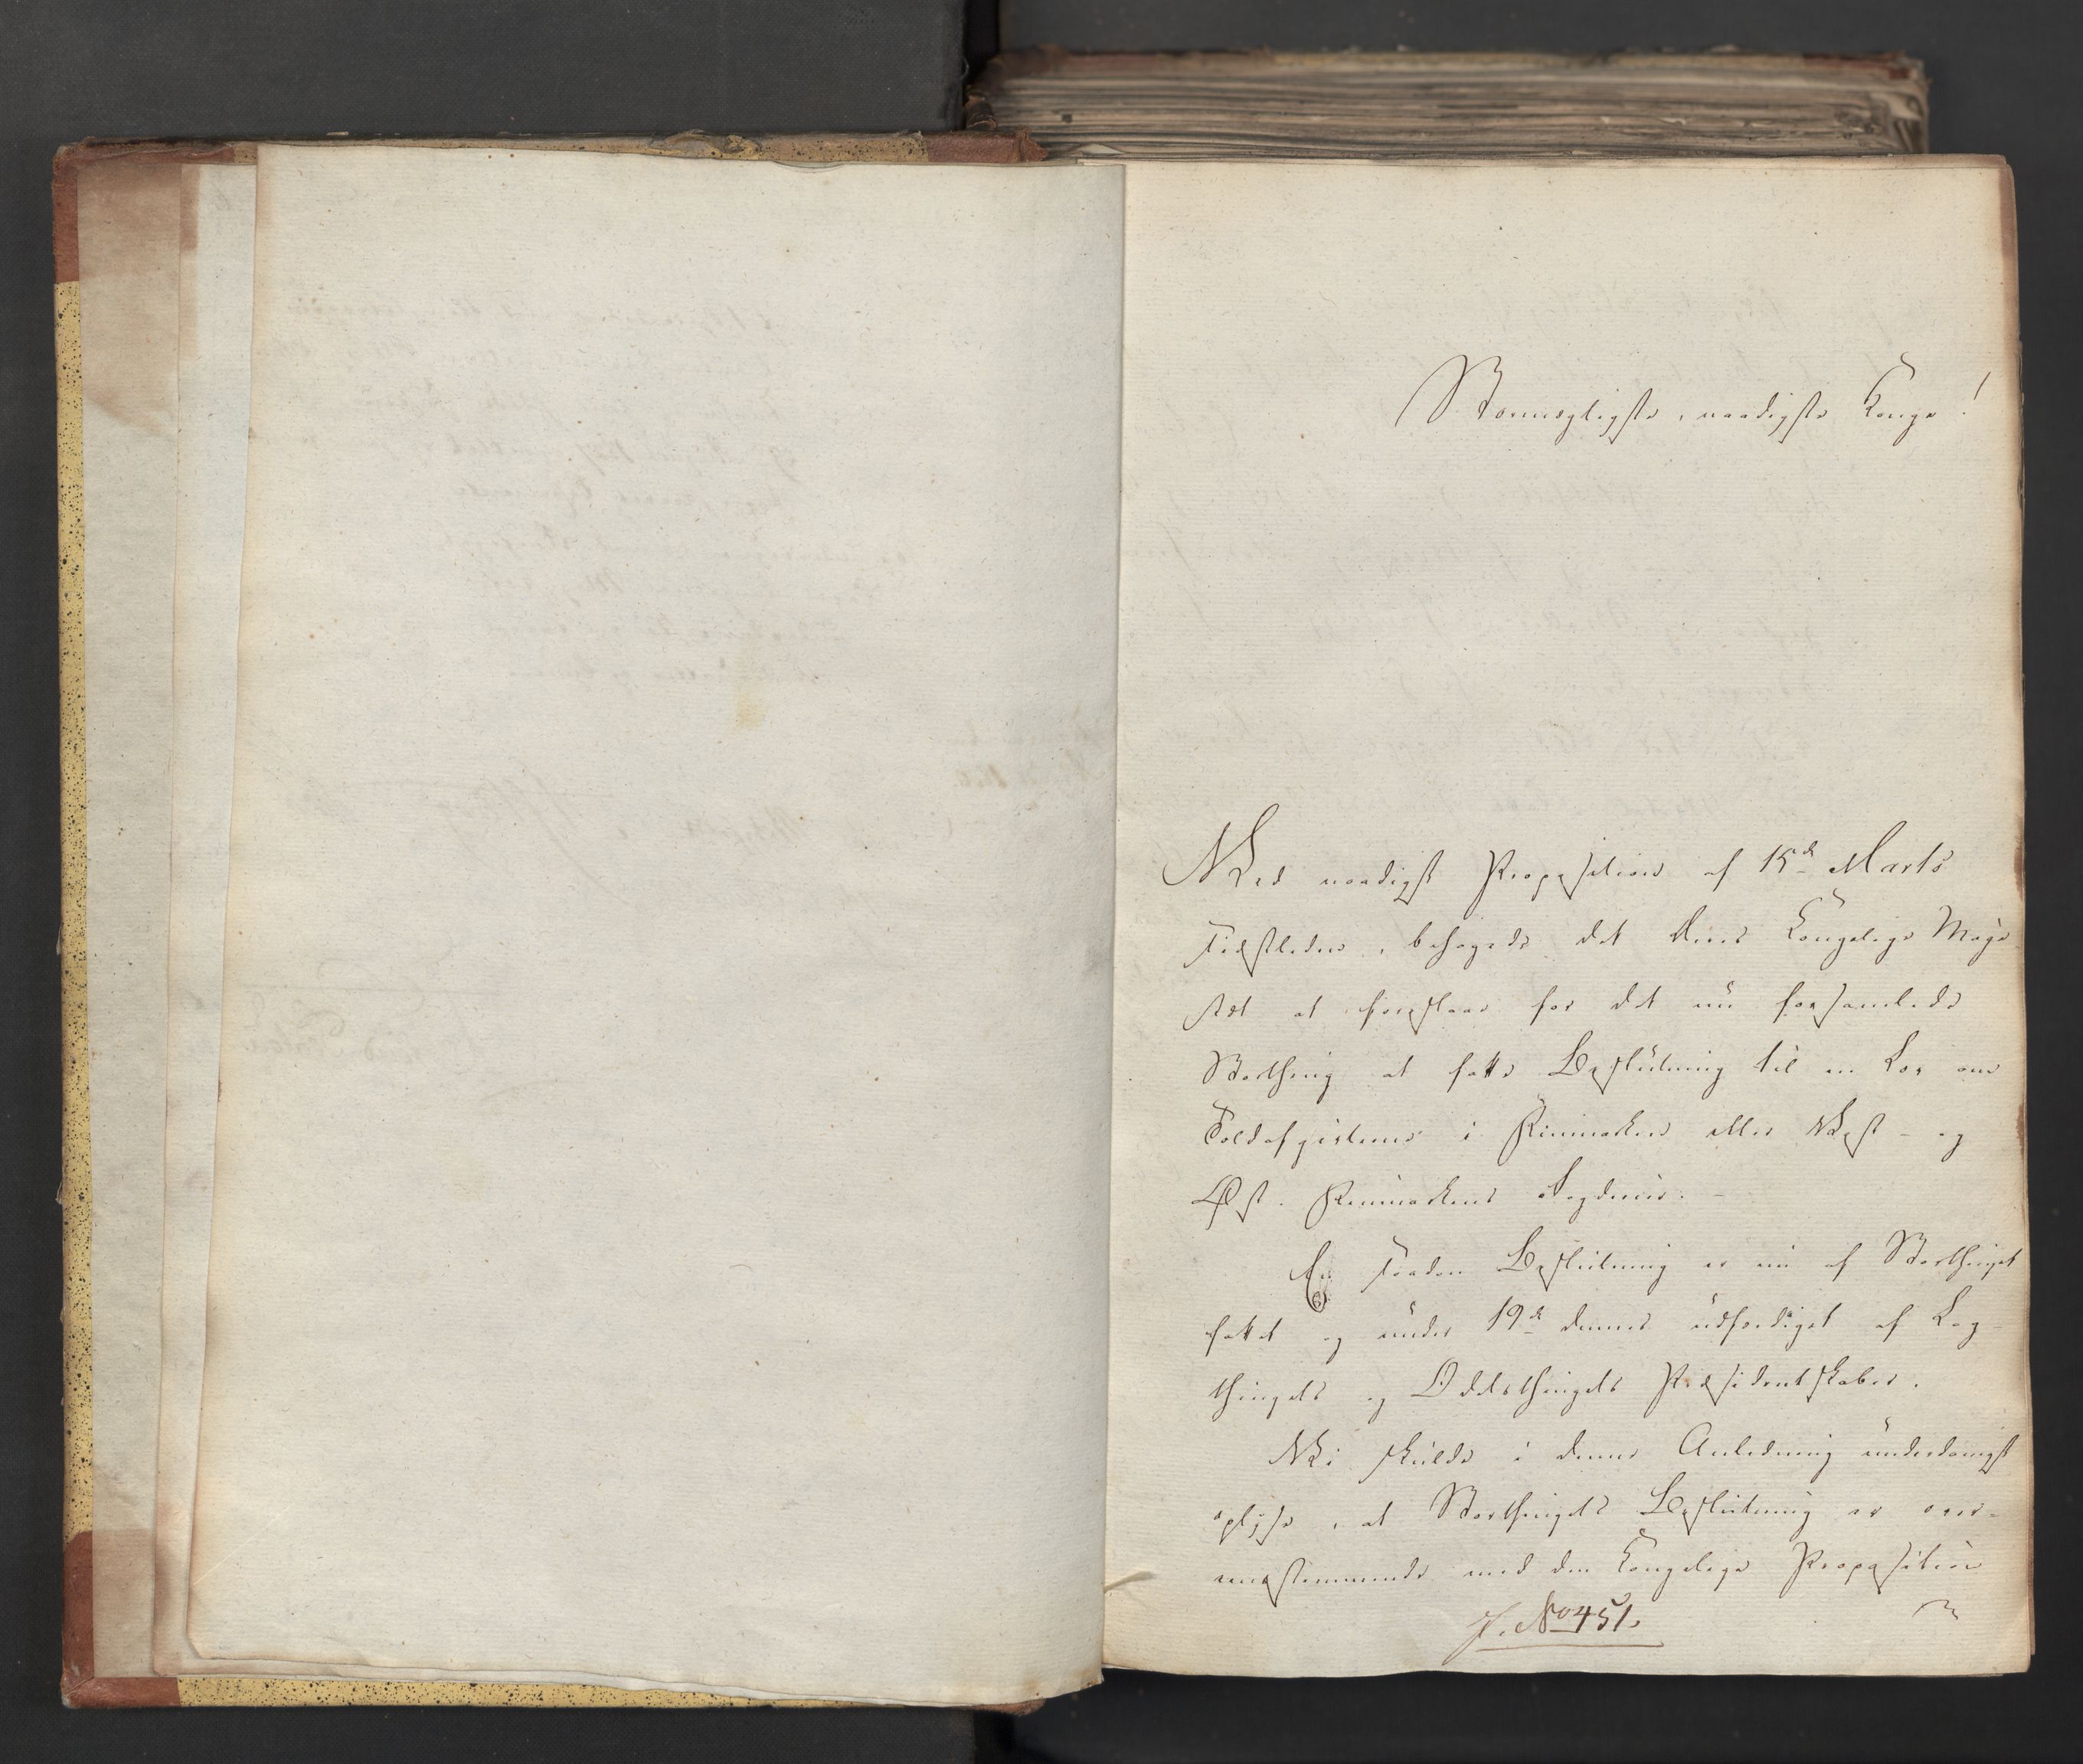 Stormægtigste, naadigste Konge!
Ved naadigst Proposition af 15de Marts
sidstleden, behagede det Deres Kongelige Maje-
stæt at foreslaae for det nu forsamlede
Storthing at fatte Beslutning til en Lov om
Toldafgivterne i Finmarken eller Vest- og
Øst-Finmarkens Fogderier. –
En saadan Beslutning er nu af Storthinget
fattet og under 19de dennes udfærdiget af Lag-
thingets og Odelsthingets Præsidentskaber.
Vi skulde i denne Anledning underdanigst
oplyse, at Storthingets Beslutning er over-
eensstemmende med den Kongelige Proposition
J. No 451.